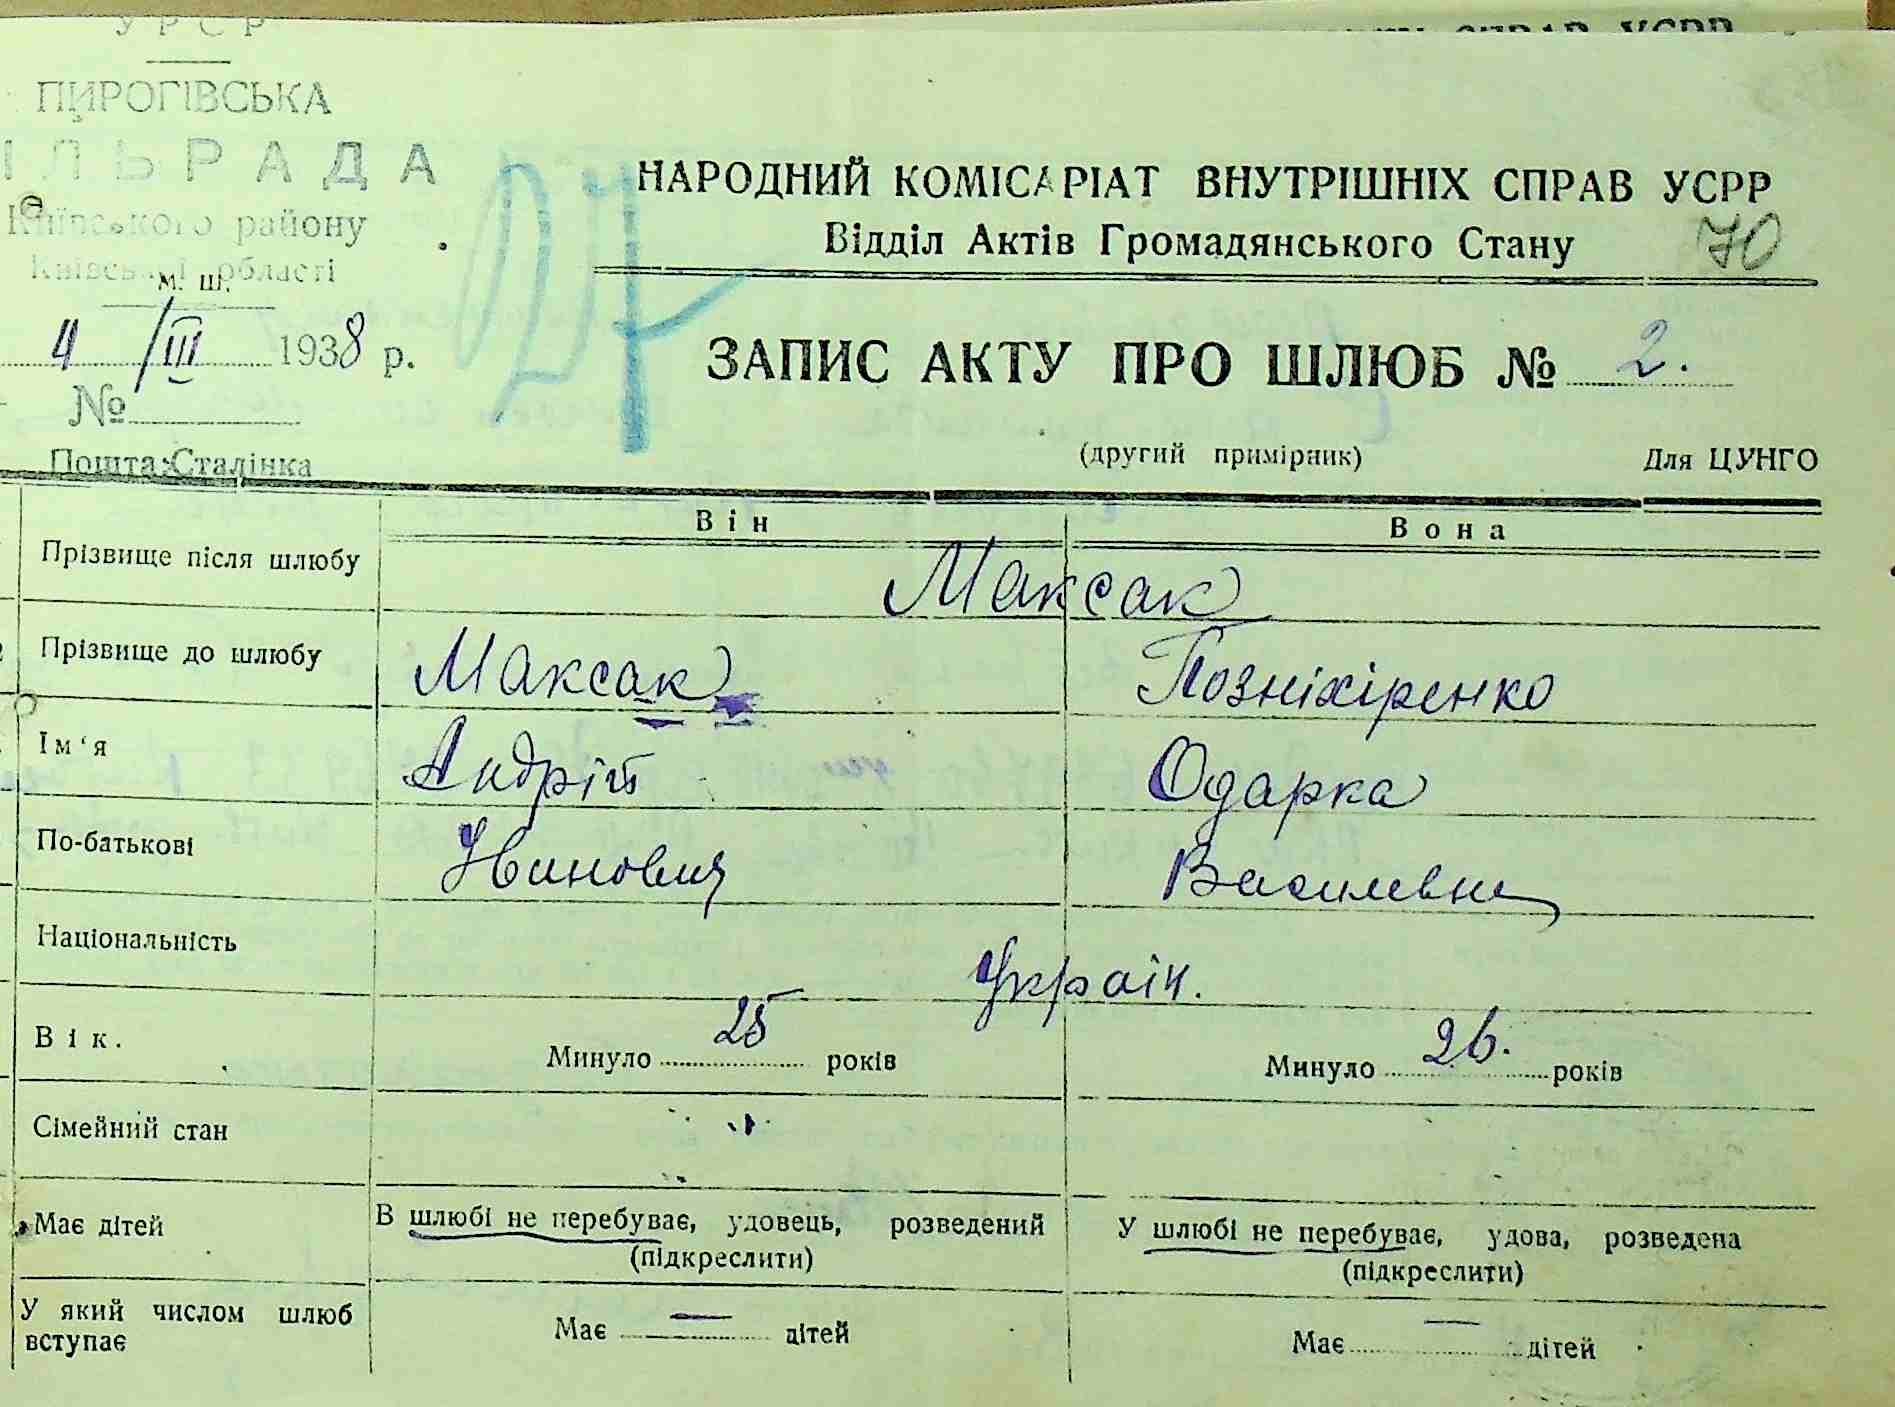 УРСР
ПИРОГІВСЬКА
ІЛЬРАДА
Київського району
Київської області
м. ш.
4/III 1938 р.
№
Пошта: Сталінка
НАРОДНИЙ КОМІСАРІАТ ВНУТРІШНІХ СПРАВ УСРР
Відділ Актів Громадянського Стану
70
ЗАПИС АКТУ ПРО ШЛЮБ № 2.
(другий примірник) Для ЦУНГО
Він Вона
Прізвище після шлюбу Максак
Прізвище до шлюбу Максак Позніхіренко
Ім'я Андрій Одарка
По-батькові Іванович Василевна
Національність Україн.
Вік. Минуло 25 років Минуло 26. років
Сімейний стан
Має дітей В шлюбі не перебуває, удовець, розведений У шлюбі не перебуває, удова, розведена
(підкреслити) (підкреслити)
У який числом шлюб вступає Має — дітей Має — дітей